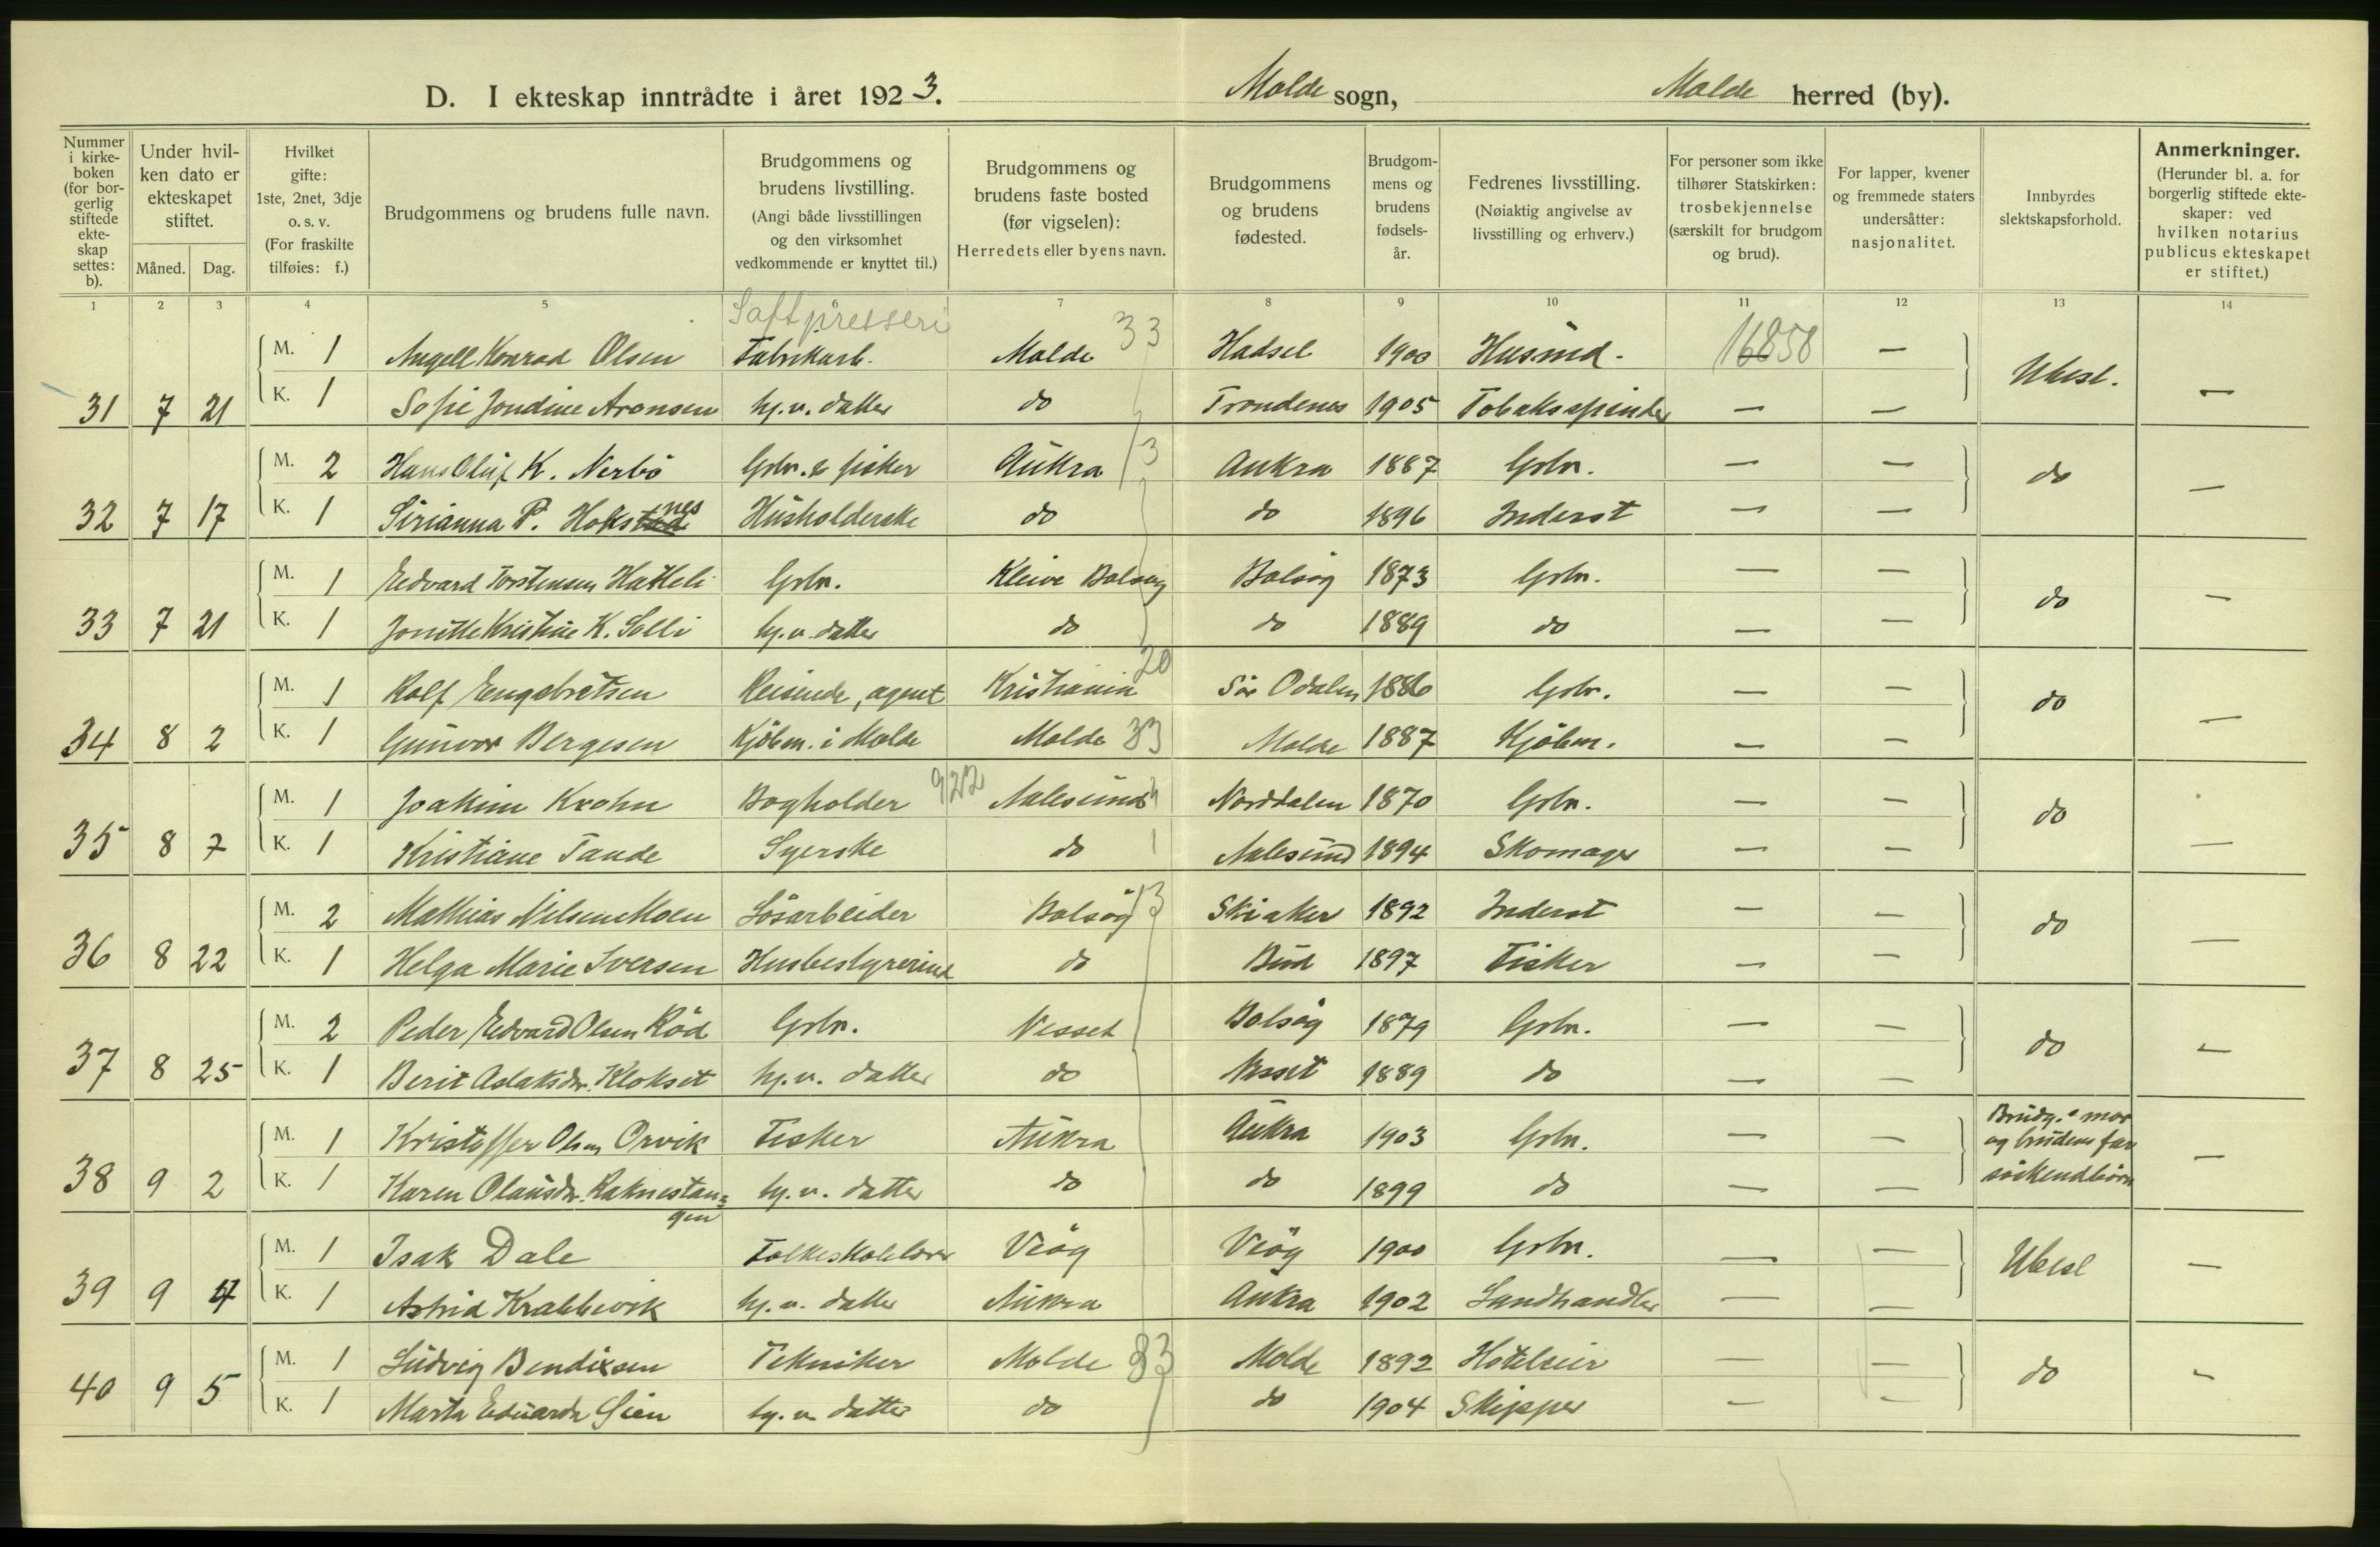 D. I ekteskap inntrådte i året 1923. Molde sogn, Molde herred (by).
Nummer i kirke- boken (for bor- gerlig stiftede ekte- skap settes: b).
Under hvil- ken dato er ekteskapet stiftet.
Måned. Dag.
Hvilket gifte: 1ste, 2net, 3dje o. s. v. (For fraskilte tilføies: f.)
Brudgommens og brudens fulle navn.
Brudgommens og brudens livstilling. (Angi både livsstillingen og den virksomhet vedkommende er knyttet til.)
Brudgommens og brudens faste bosted (før vigselen): Herredets eller byens navn.
Brudgommens og brudens fødested.
Brudgom- mens og brudens fødsels- år.
Fedrenes livsstilling. (Nøiaktig angivelse av livsstilling og erhverv.)
For personer som ikke tilhører Statskirken: trosbekjennelse (særskilt for brudgom og brud).
For lapper, kvener og fremmede staters undersåtter: nasjonalitet.
Innbyrdes slektskapsforhold.
Anmerkninger. (Herunder bl. a. for borgerlig stiftede ekte- skaper: ved hvilken notarius publicus ekteskapet er stiftet.)
1 2 3 4 5 6 7 8 9 10 11 12 13 14
Saftpresseri
M. 1 Angell Konrad Olsen Fabrikarb. Molde 33 Hadsel 1900 Husmd. 16858 —
31 7 21 K. 1 Sofie Jondine Aronsen hj.v. datter do Trondenes 1905 Tobakspinder — — Ubesl. —
M. 2 Hans Oluf K. Nerbö Gbr. & fisker Aukra 13 Aukra 1887 Gbr. — —
32 7 17 K. 1 Sirianna P. Hoksnes Husholderske do do 1896 Inderst — — do —
M. 1 Edvard Torstensen Hatleli Gbr. Kleive Bolsøy Bolsøy 1873 Gbr. — —
33 7 21 K. 1 Jonitte Kristine K. Solli hj.v. datter do do 1889 do — — do —
M. 1 Rolf Engebretsen Reisende, agent Kristiania 20 Sör Odalen 1886 Gbr. — —
34 8 2 K. 1 Gunvor Bergesen Kjöbm. i Molde Molde 33 Molde 1887 Kjöbm. — — do —
M. 1 Joakim Krohn Bogholder 922 Aalesund Norddalen 1870 Gbr. — —
35 8 7 K. 1 Kristiane Tande Syerske do Aalesund 1894 Skomager — — do —
M. 2 Mathias Nilsen Moen Lösarbeider Bolsöy 13 Skiaker 1892 Inderst — —
36 8 22 K. 1 Helga Marie Iversen Husbestyrerind do Bud 1897 Fisker — — do —
M. 2 Peder Edvard Olsen Röd Gbr. Nesset Bolsöy 1879 Gbr. — —
37 8 25 K. 1 Berit Aslaksdr. Klokset hj.v. datter do Nesset 1889 do — — do —
M. 1 Kristoffer Olsen Orvik Fisker Aukra Aukra 1903 Gbr. — — Brudg.s mor
og brudens far
38 9 2 K. 1 Karen Olausdr. Raknestan= hj.v. datter do do 1899 do — — söskendbörn —
gen
M. 1 Isak Dale Folkeskolelærer Veöy Veöy 1900 Gbr. — —
39 9 4 K. 1 Astrid Krabbevik hj.v. datter Aukra Aukra 1902 Landhandler — — Ubesl —
M. 1 Ludvig Bendixsen Tekniker Molde 33 Molde 1892 Hoteleier — —
40 9 5 K. 1 Marta Edvarda Gien hj.v. datter do do 1904 Skipper — — do —